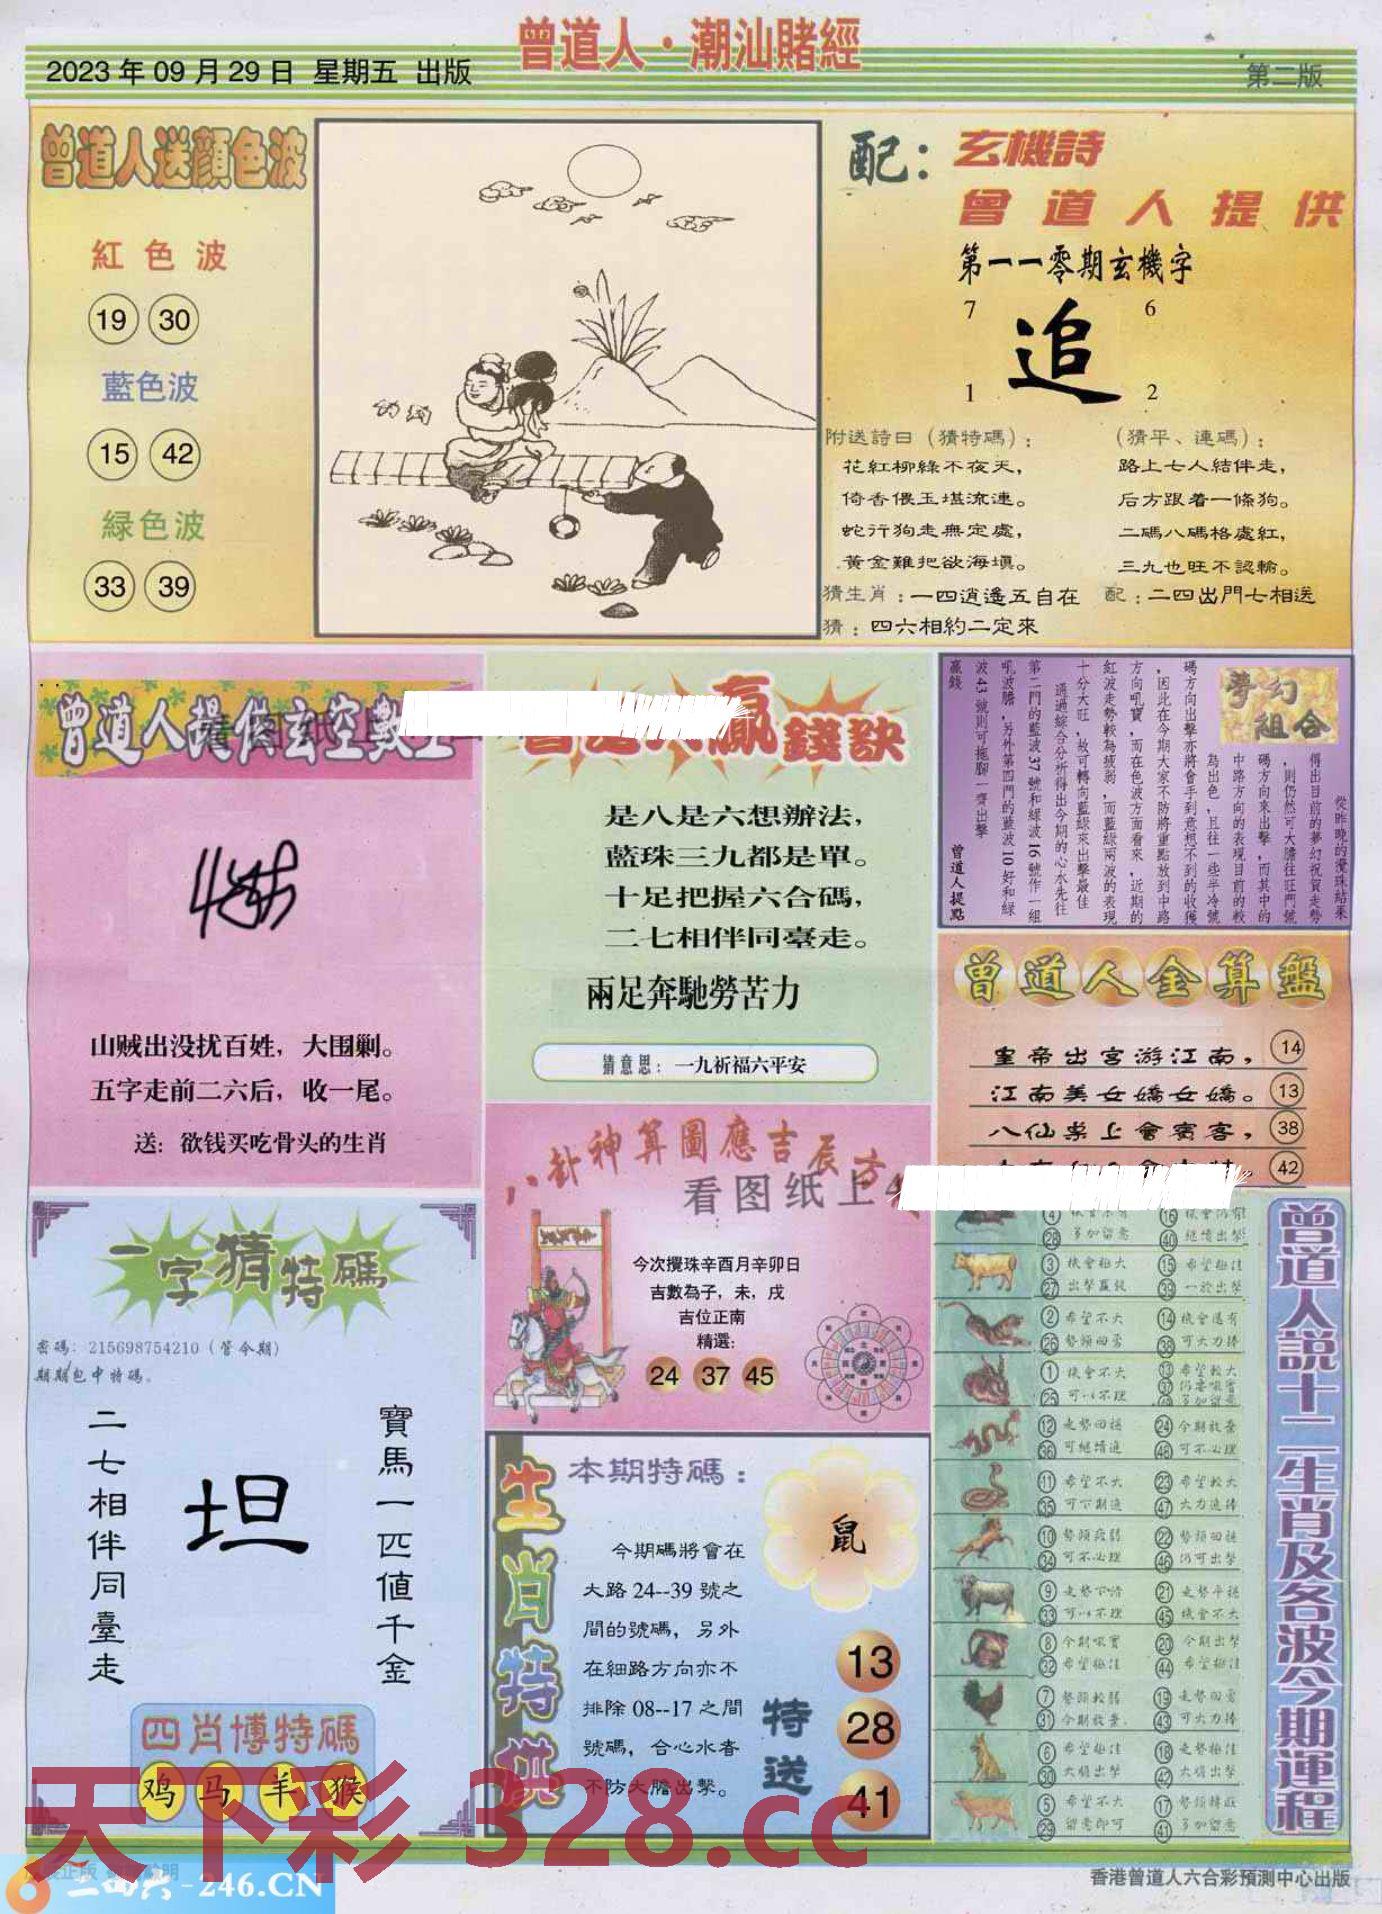 曾道人·潮汕賭經
2023年09月29日 星期五 出版
第二版
曾道人送顏色波
紅色波
19 30
藍色波
15 42
緑色波
33 39
配：玄機詩
曾道人提供
第一一零期玄機字
7 6
追
1 2
附送詩曰（猜特碼）：
花紅柳緑不夜天，
倚香偎玉堪流連。
蛇行狗走無定處，
黃金難把欲海填。
（猜平、連碼）：
路上七人結伴走，
后方跟着一條狗。
二碼八碼格處紅，
三九也旺不認輸。
猜生肖：一四逍遙五自在 配：二四出門七相送
猜：四六相約二定來
曾道人提供玄空數
山贼出没扰百姓，大围剿。
五字走前二六后，收一尾。
送：欲钱买吃骨头的生肖
贏錢訣
是八是六想辦法，
藍珠三九都是單。
十足把握六合碼，
二七相伴同臺走。
兩足奔馳勞苦力
猜意思：一九祈福六平安
夢幻組合
從昨晚的攪珠結果
得出目前的夢幻祝賀走勢
，則仍然可大膽往旺門號
碼方向來出擊，而其中的
中路方向的表現目前的較
為出色，且往一些半冷號
碼方向出擊亦將會手到意想不到的收獲
，因此在今期大家不防將重點放到中路
方向吼寶，而在色波方面看來，近期的
紅波走勢較為疲弱，而藍緑兩波的表現
十分大旺，故可轉向藍緑來出擊最佳
通過綜合分析得出今期的心水先往
第二門的藍波37號和緑波16號作一組
吼波膽，另外第四門的藍波10好和緑
波43號則可拖腳一齊出擊
贏錢
曾道人提點
曾道人金算盤
皇帝出宮游江南， 14
江南美女嬌女嬌。 13
八仙桌上會賓客， 38
42
八卦神算圖應吉辰方
看图纸上
今次攪珠辛酉月辛卯日
吉數為子，未，戌
吉位正南
精選：
24 37 45
一字猜特碼
密碼：215698754210（管今期）
期期包中特碼。
寶馬一匹值千金
坦
二七相伴同臺走
四肖博特碼
鸡 马 羊 猴
生肖特供
本期特碼：
鼠
今期碼將會在
大路24--39號之
間的號碼，另外
在細路方向亦不
排除08--17之間
號碼，合心水者
不防大膽出擊。
特送
13
28
41
曾道人説十二生肖及各波今期運程
4 16 機會仍有
28 多加留意 40 继續出擊
3 機會極大 15 希望極佳
27 出擊贏錢 39 一於出擊
2 希望不大 14 機會還有
26 勢頭回勇 38 可大力捧
1 機會不大 13 希望較大
25 可以不理 37 49
12 走勢回穩 24 今期放棄
36 可继續追 48 可不必理
11 希望不大 23 希望較大
35 可下期追 47 大力追捧
10 勢頭疲弱 22 勢頭回穩
34 可不必理 46 仍可出擊
9 走勢下滑 21 走勢平穩
33 可以不理 45 機會不大
8 今期吼寶 20 今期出擊
32 希望極佳 44 希望極佳
7 勢頭較弱 19 走勢回勇
31 今期放棄 43 可大力捧
6 希望極佳 18 走勢極佳
30 大膽出擊 42 大膽出擊
5 希望不大 17 勢頭轉旺
29 留意即可 41 多加留意
天下彩 328.cc
二四六-246.CN
香港曾道人六合彩預測中心出版